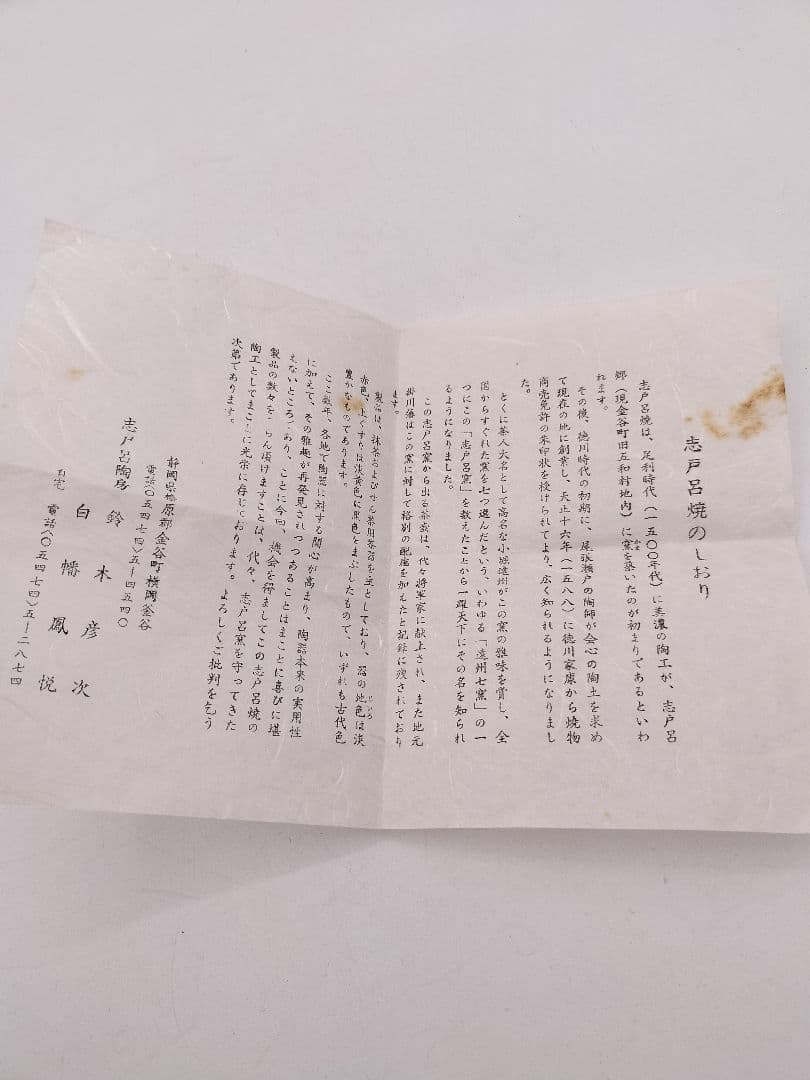 志戸呂焼のしおり
志戸呂焼は、足利時代(一五〇〇年代)に美濃の陶工が、志戸呂
郷(現金谷町旧五和村地内)に窯を築いたのが初まりであるといわ
かま
れます。
その後、徳川時代の初期に、尾張瀬戸の陶師が会心の陶土を求め
て現在の地に創業し、天正十六年(一五八八)に徳川家康から焼物
商売免許の朱印状を授けられてより、広く知られるようになりまし
た。
とくに茶人大名として高名な小堀遠州がこの窯の雅味を賞し、全
国からすぐれた窯を七つ選んだという、いわゆる「遠州七窯」の一
つにこの「志戸呂窯」を数えたことから一躍天下にその名を知られ
るようになりました。
この志戸呂窯から出る茶壺は、代々将軍家に献上され、また地元
掛川藩はこの窯に対して格別の配慮を加えたと記録に残されており
ます。
製品は、抹茶およびせん茶用茶器を主としており、器の地色は淡
じいろ
赤色、上ぐすりは淡黄色に黒色をまぶしたもので、いずれも古代色
豊かなものであります。
ここ数年、各地で陶器に対する関心が高まり、陶器本来の実用性
に加えて、その雅趣が再発見されつつあることはまことに喜びに堪
えないところであり、ことに今回、機会を得ましてこの志戸呂焼の
製品の数々をごらん頂けますことは、代々、志戸呂窯を守ってきた
陶工としてまことに光栄に存じております。よろしくご批判を乞う
次第であります。
静岡県榛原郡金谷町横岡釜谷
電話(〇五四七四)五ー四五四〇
志戸呂陶房 鈴木彦次
白幡鳳悦
自宅 電話(〇五四七四)五ー二八七四